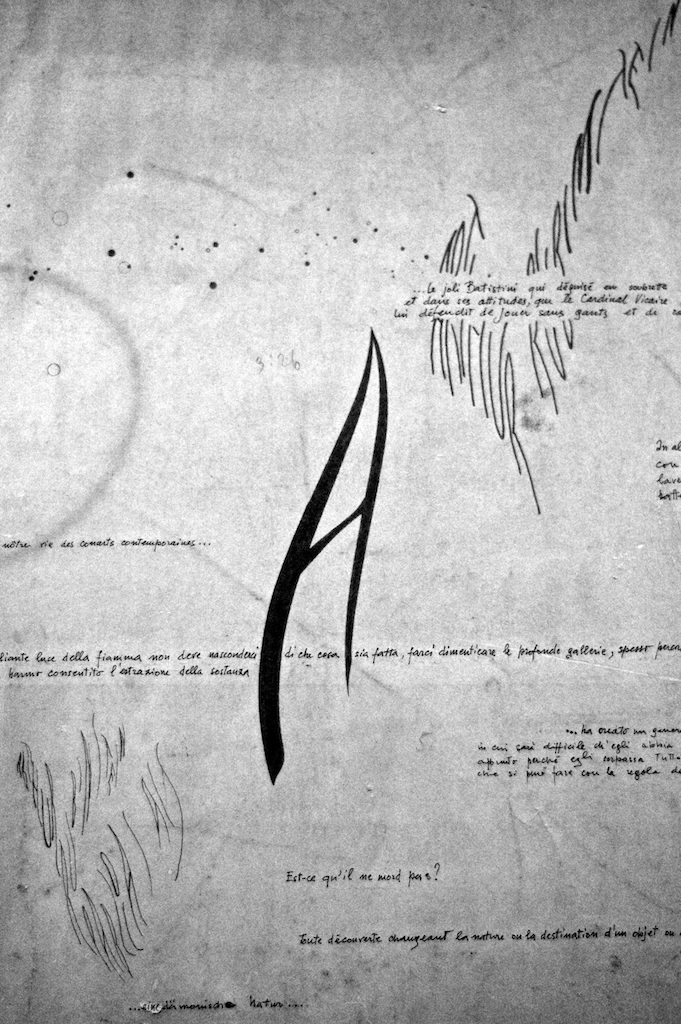 ...le joli Batistini qui déguisé en soubrette
et dans ses attitudes, que le Cardinal Vicaire
lui défendit de jouer sans gants et de
3:26
A
In al
con
notre vie des
contemporaines...
liante luce della fiamma non deve nasconderci di che cosa sia fatta, farci dimenticare le profonde gallerie, spesso
hanno consentito l'estrazione della sostanza
...ha creato un gener
in cui sarà difficile ch'egli abbia
appunto perché egli sorpassa tutt
che si può fare con la regola de
Est-ce qu'il ne mord pas?
Toute découverte changeant la nature ou la destination d'un objet ou
Natur...